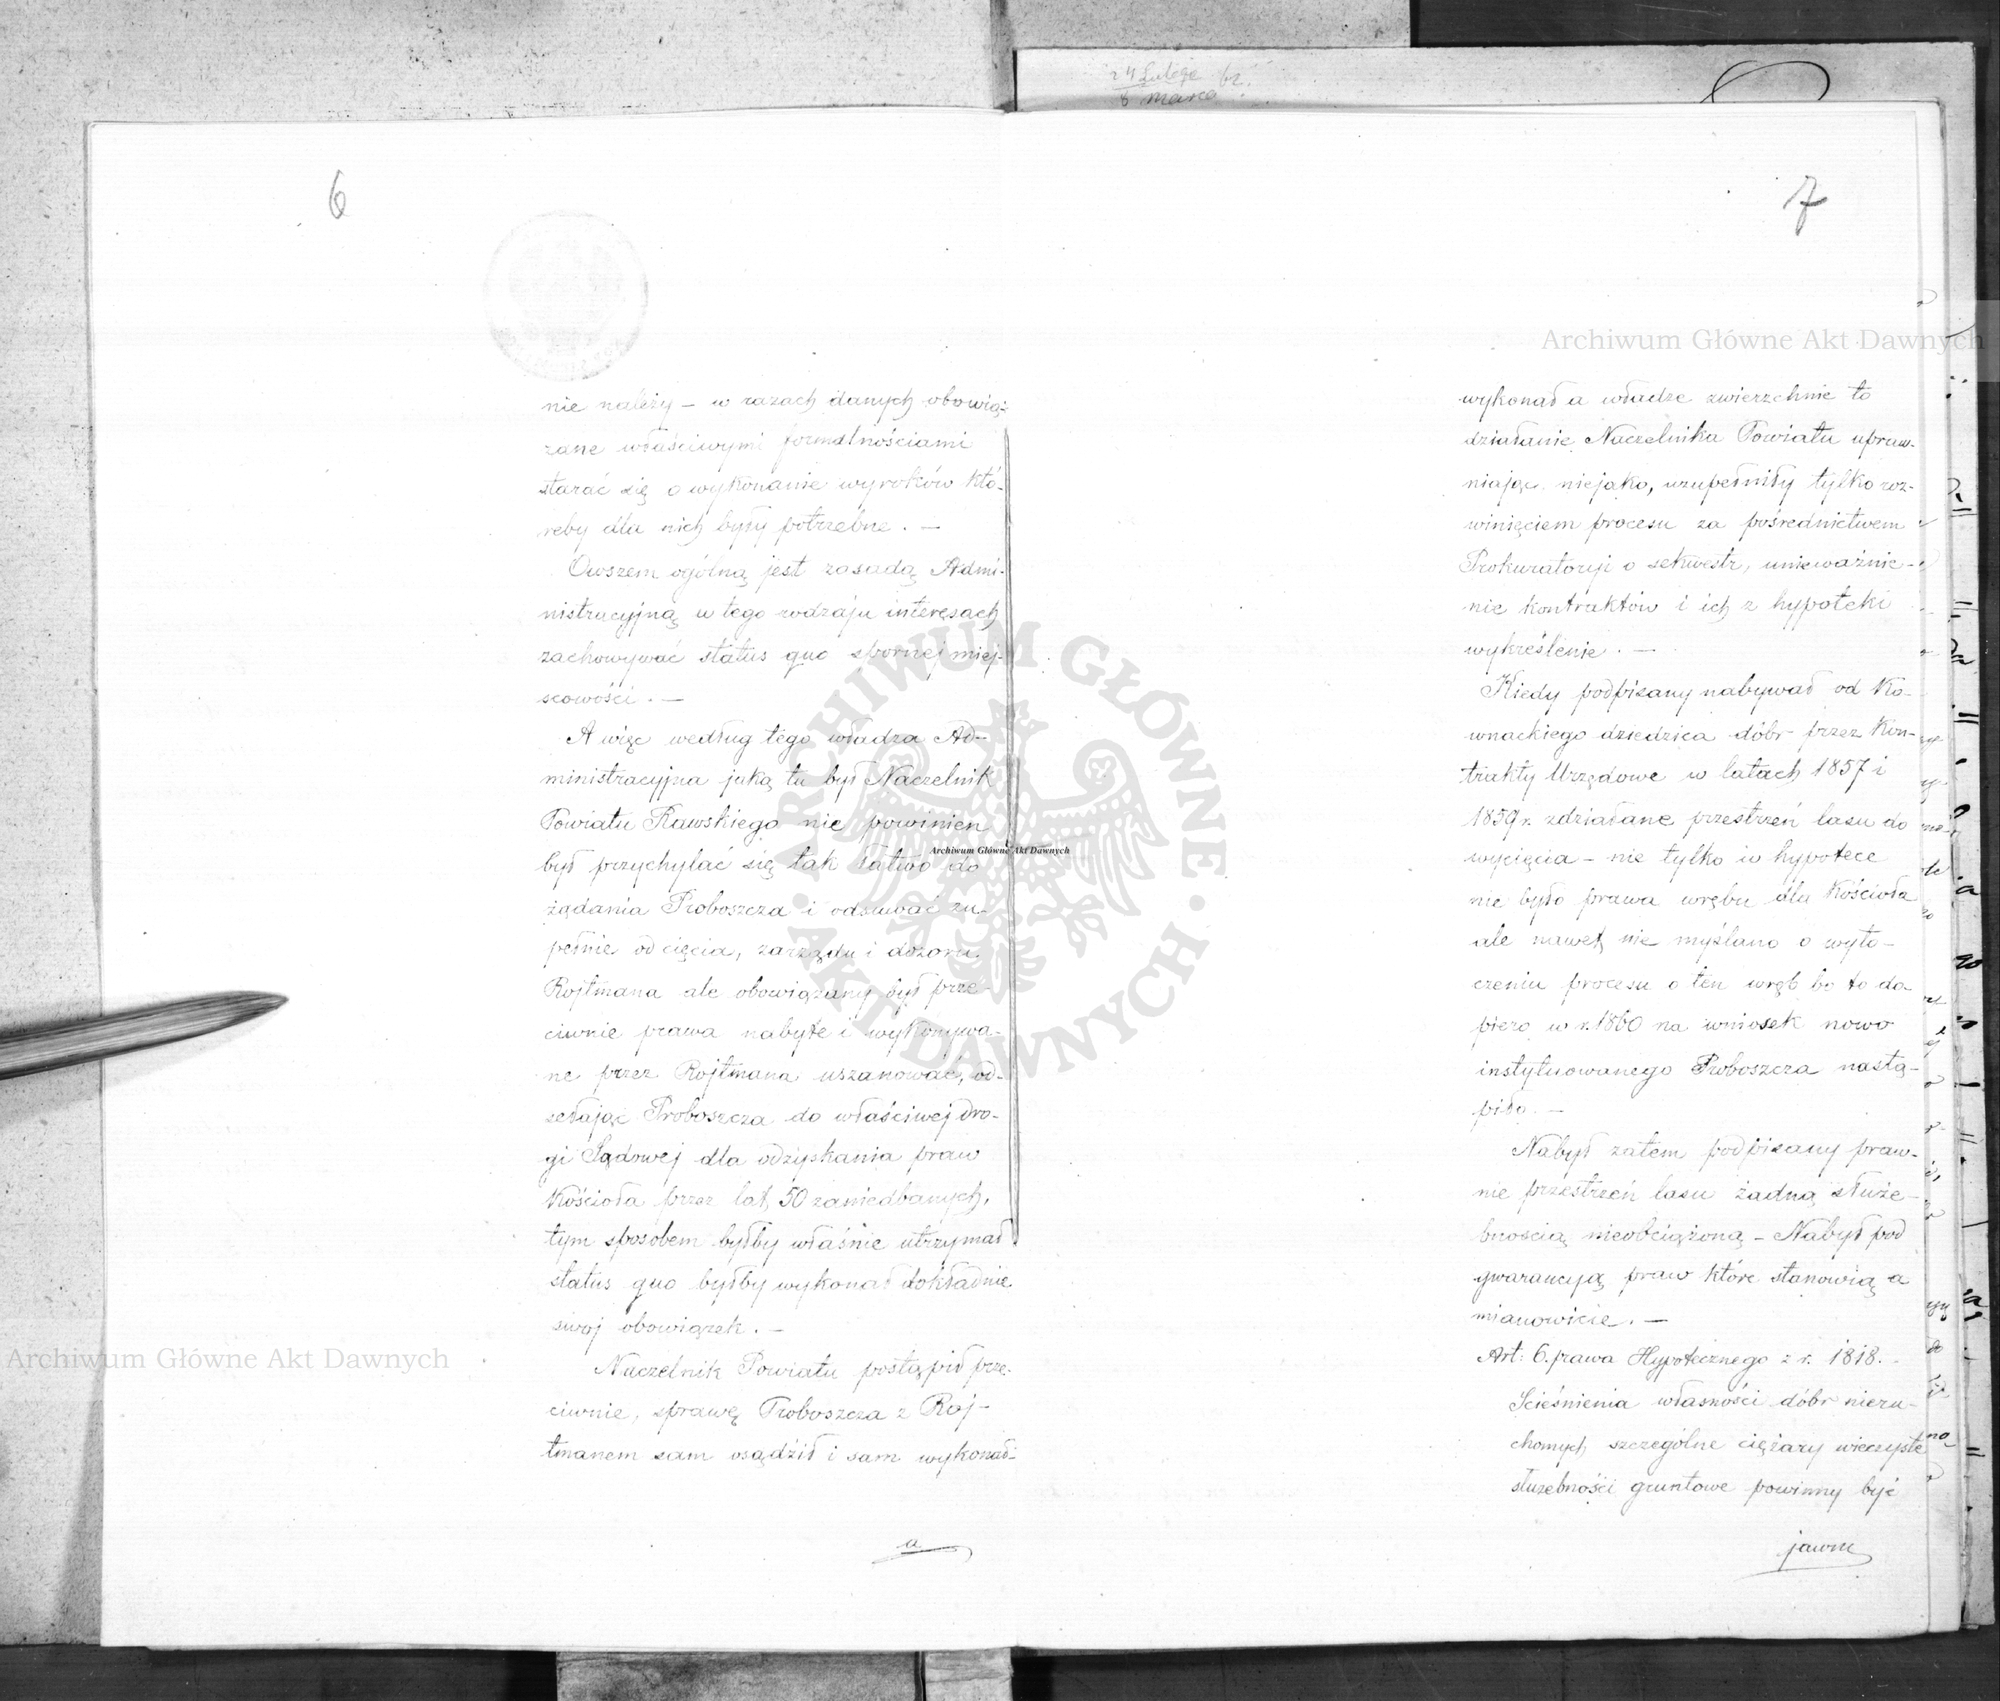 24 Lutego 62.
8 Marca
6
nie należy – w razach danych obowią-
zane właściwymi formalnościami
starać się o wykonanie wyroków któ-
reby dla nich były potrzebne. –
Owszem ogólną jest zasadą Admi-
nistracyjną w tego rodzaju interesach
zachowywać status quo spornej miej-
scowości. –
A więc według tego władza Ad-
ministracyjna jaką tu był Naczelnik
Powiatu Rawskiego nie powinien
był przychylać się tak łatwo do
żądania Proboszcza i odsuwać zu-
pełnie od cięcia, zarządu i dozoru
Rojtmana ale obowiązany był prze-
ciwnie prawa nabyte i wykonywa-
ne przez Rojtmana uszanować, od-
sełając Proboszcza do właściwej dro-
gi Sądowej dla odzyskania praw
Kościoła przez lat 50 zaniedbanych,
tym sposobem byłby właśnie utrzymał
status quo byłby wykonał dokładnie
swój obowiązek. –
Naczelnik Powiatu postąpił prze-
ciwnie, sprawę Proboszcza z Roj-
tmanem sam osądził i sam wykonał-
a
7
wykonał a władze zwierzchnie to
działanie Naczelnika Powiatu upraw-
niając niejako, uzupełniły tylko roz-
winięciem procesu za pośrednictwem
Prokuratoryi o sekwestr, unieważnie-
nie kontraktów i ich z hypoteki
wykreślenie. –
Kiedy podpisany nabywał od Ko-
wnackiego dziedzica dóbr przez Kon-
trakty Urzędowe w latach 1857 i
1859 r. zdziałane przestrzeń lasu do
wycięcia – nie tylko w hypotece
nie było prawa wrębu dla Kościoła
ale nawet nie myślano o wyto-
czeniu procesu o ten wręb bo to do-
piero w r. 1860 na wniosek nowo
instytuowanego Proboszcza nastą-
piło. –
Nabył zatem podpisany praw-
nie przestrzeń lasu żadną służe-
bnością nieobciążoną – Nabył pod
gwarancyją praw które stanowią a
mianowicie. –
Art: 6. prawa Hypotecznego z r. 1818.
Scieśnienia własności dóbr nieru-
chomych szczególne ciężary wieczyste
służebności gruntowe powinny być
jawne
Archiwum Główne Akt Dawnych
Archiwum Główne Akt Dawnych
Archiwum Główne Akt Dawnych
ARCHIWUM GŁÓWNE AKT DAWNYCH